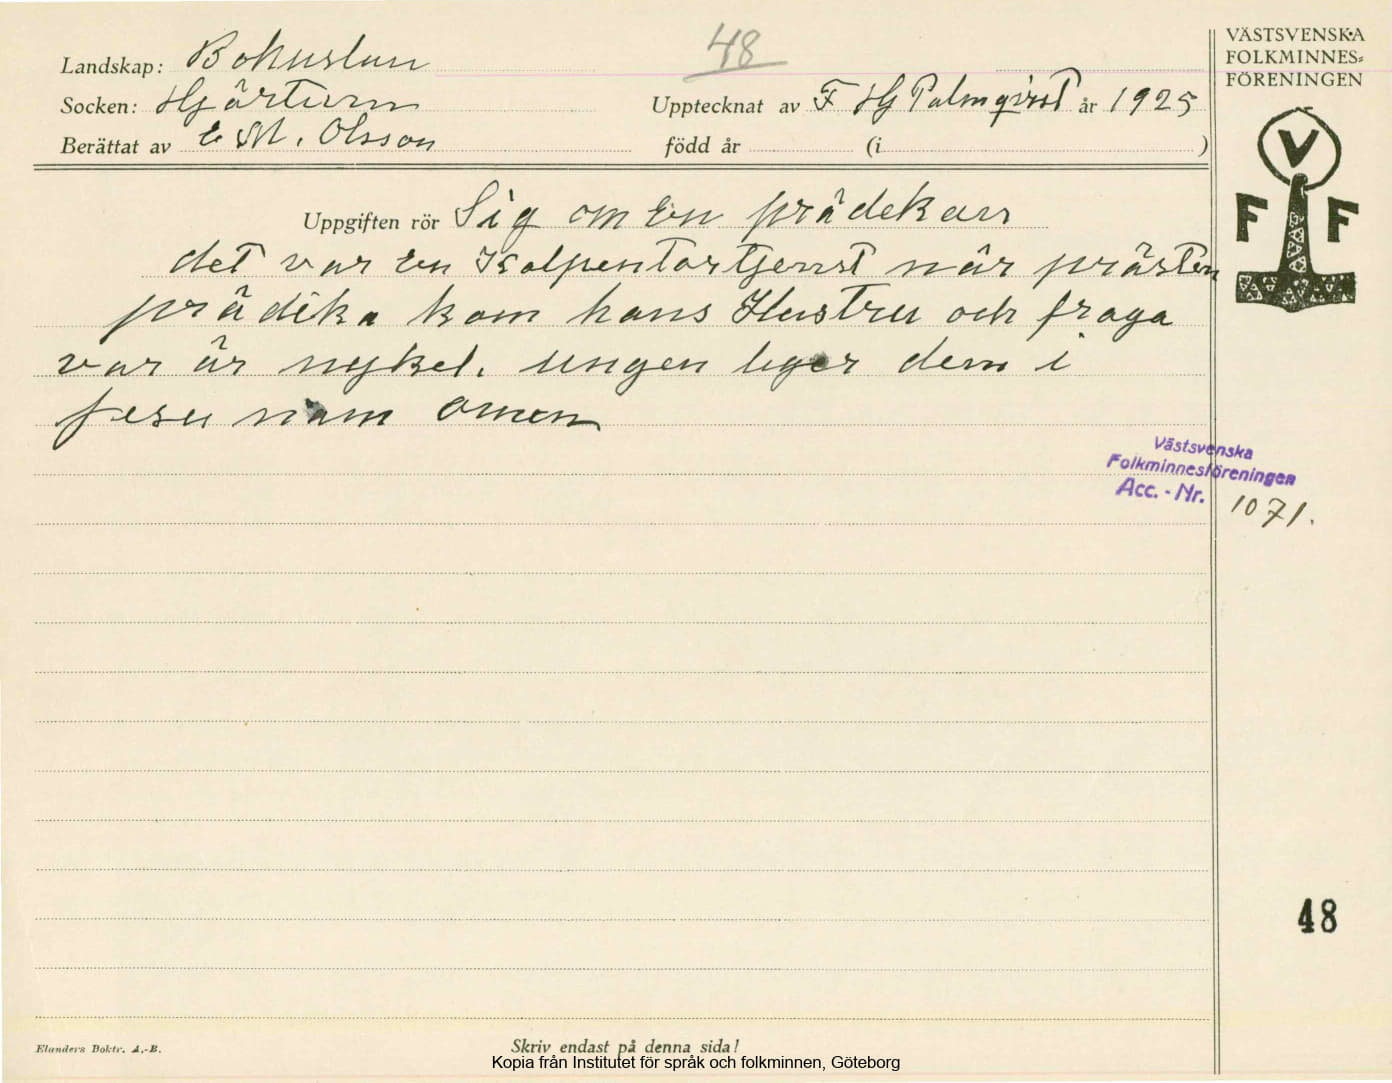 48
VÄSTSVENSKA
FOLKMINNES=
FÖRENINGEN
Landskap: Bohuslan
Socken: Hjärtum
Upptecknat av F Hj Palmqvist år 1925
Berättat av E M. Olsson född år (i )
V
F F
Uppgiften rör Sig om En prädekan
det var En Kolpentortjenst när prästen
prädika kom hans Hustru och fraga
var är nykel. ungen liger dem i
jesu nam amen
Västsvenska
Folkminnesföreningen
Acc. - Nr. 1071.
48
Elanders Boktr. A.-B.
Skriv endast på denna sida!
Kopia från Institutet för språk och folkminnen, Göteborg